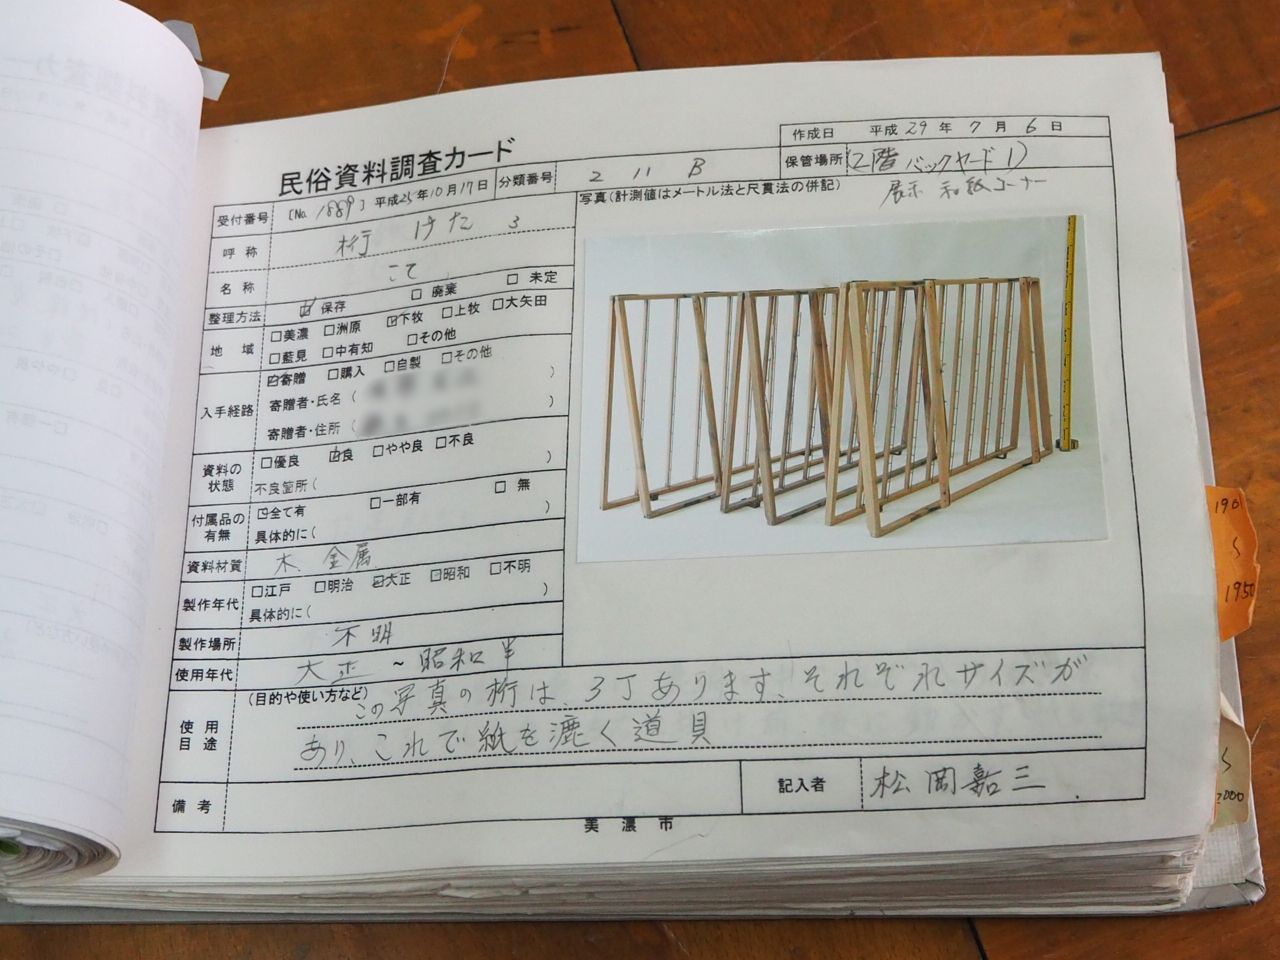 民俗資料調査カード
作成日 平成29年7月6日
保管場所 (2階バックヤード1)
展示 和紙コーナー
受付番号 〔No. 1889〕 平成25年10月17日 分類番号 2 11 B
写真(計測値はメートル法と尺貫法の併記)
呼称 桁 けた 3
名称 こて
整理方法 ☑保存 □廃棄 □未定
地域 □美濃 □洲原 ☑下牧 □上牧 □大矢田
□藍見 □中有知 □その他
入手経路 ☑寄贈 □購入 □自製 □その他
寄贈者・氏名( )
寄贈者・住所( )
資料の状態 □優良 ☑良 □やや良 □不良
不良箇所( )
付属品の有無 ☑全て有 □一部有 □無
具体的に( )
資料材質 木、金属
製作年代 □江戸 □明治 ☑大正 ☑昭和 □不明
具体的に( )
製作場所 不明
使用年代 大正~昭和半
使用目途 (目的や使い方など)
この写真の桁は、3丁あります、それぞれサイズが
あり、これで紙を漉く道具
備考
記入者 松岡嘉三
美濃市
190
S
1950
S
2000